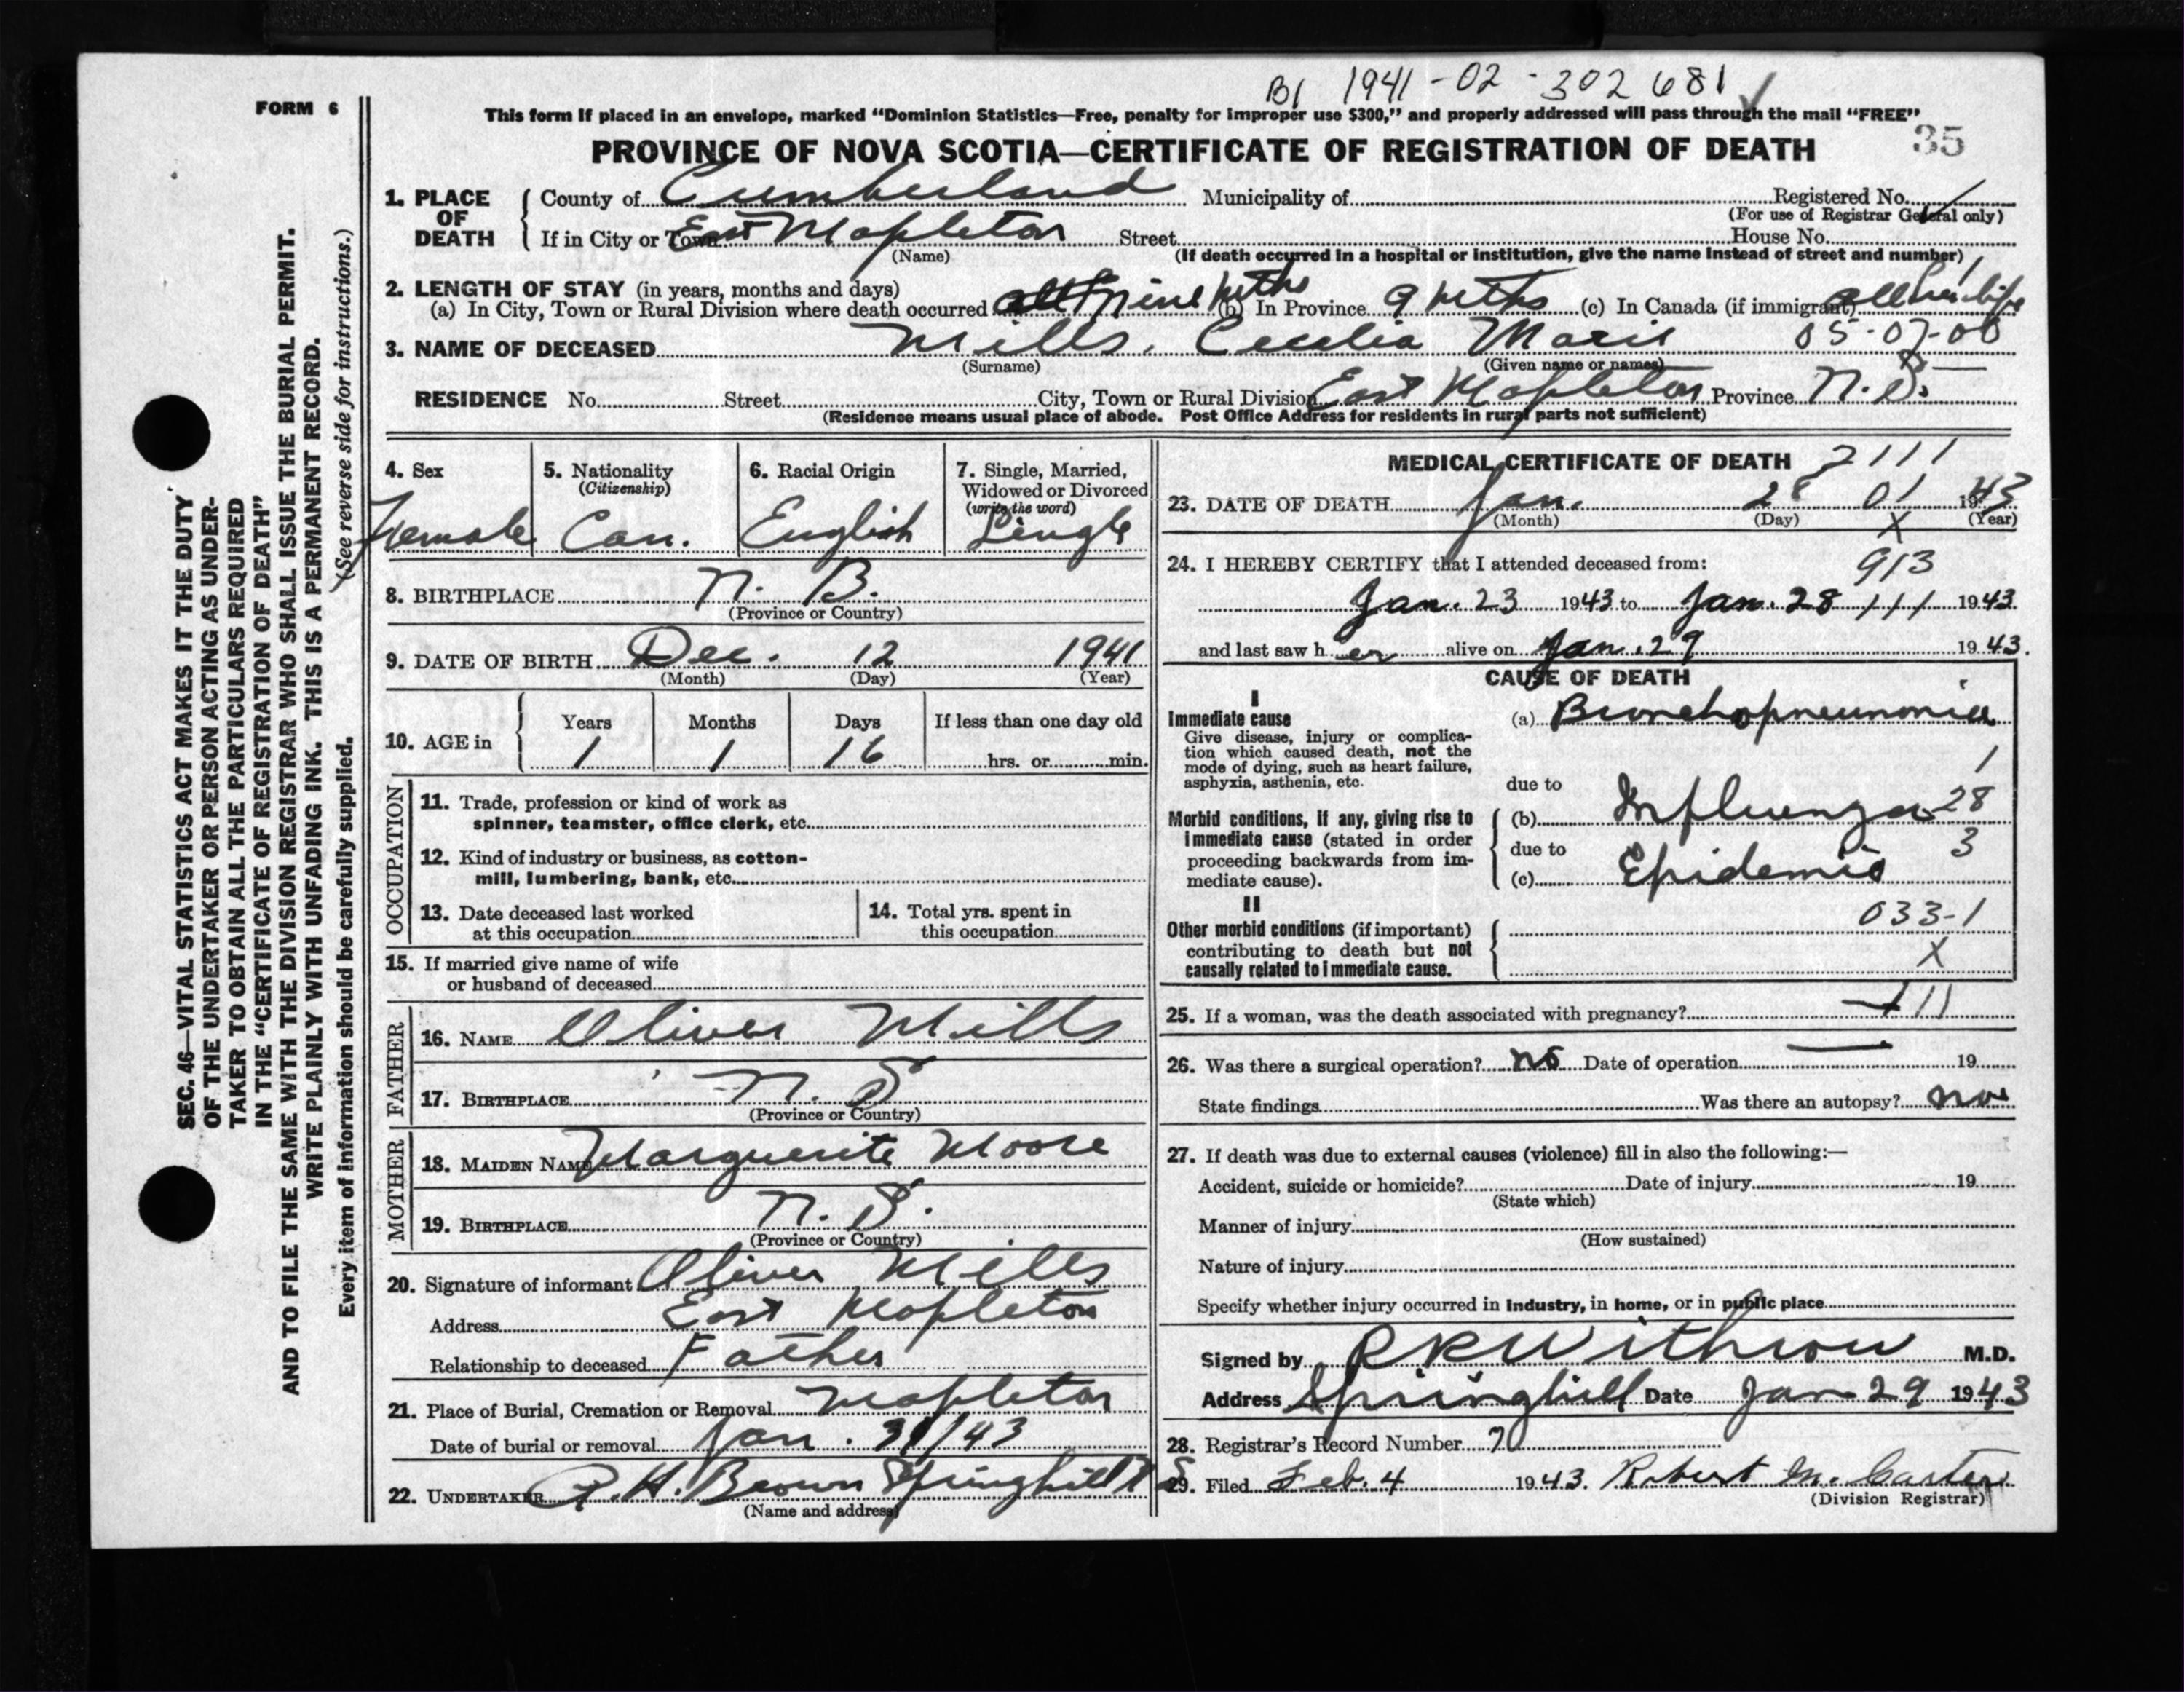 B1 1941-02-302681
FORM 6
This form if placed in an envelope, marked "Dominion Statistics—Free, penalty for improper use $300," and properly addressed will pass through the mail "FREE"
PROVINCE OF NOVA SCOTIA—CERTIFICATE OF REGISTRATION OF DEATH 35
SEC. 46—VITAL STATISTICS ACT MAKES IT THE DUTY
OF THE UNDERTAKER OR PERSON ACTING AS UNDER-
TAKER TO OBTAIN ALL THE PARTICULARS REQUIRED
IN THE "CERTIFICATE OF REGISTRATION OF DEATH"
AND TO FILE THE SAME WITH THE DIVISION REGISTRAR WHO SHALL ISSUE THE BURIAL PERMIT.
WRITE PLAINLY WITH UNFADING INK. THIS IS A PERMANENT RECORD.
Every item of information should be carefully supplied. (See reverse side for instructions.)
1. PLACE OF DEATH
County of Cumberland Municipality of Registered No.
(For use of Registrar General only)
If in City or Town East Mapleton Street House No.
(Name) (If death occurred in a hospital or institution, give the name instead of street and number)
2. LENGTH OF STAY (in years, months and days)
(a) In City, Town or Rural Division where death occurred nine Mths (b) In Province 9 Mths (c) In Canada (if immigrant) all her life
3. NAME OF DECEASED Mills, Cecelia Marie 05-07-00
(Surname) (Given name or names)
RESIDENCE No. Street City, Town or Rural Division East Mapleton Province N.S.
(Residence means usual place of abode. Post Office Address for residents in rural parts not sufficient)
4. Sex
Female
5. Nationality
(Citizenship)
Can.
6. Racial Origin
English
7. Single, Married,
Widowed or Divorced
(write the word)
Single
8. BIRTHPLACE N. B.
(Province or Country)
9. DATE OF BIRTH Dec. 12 1941
(Month) (Day) (Year)
10. AGE in
Years Months Days If less than one day old
1 1 16 hrs. or min.
OCCUPATION
11. Trade, profession or kind of work as
spinner, teamster, office clerk, etc.
12. Kind of industry or business, as cotton-
mill, lumbering, bank, etc.
13. Date deceased last worked
at this occupation
14. Total yrs. spent in
this occupation
15. If married give name of wife
or husband of deceased
FATHER
16. NAME Oliver Mills
17. BIRTHPLACE N. S
(Province or Country)
MOTHER
18. MAIDEN NAME Marguerite Moore
19. BIRTHPLACE N. S.
(Province or Country)
20. Signature of informant Oliver Mills
Address East Mapleton
Relationship to deceased Father
21. Place of Burial, Cremation or Removal Mapleton
Date of burial or removal Jan. 31/43
22. UNDERTAKER A. H. Brown Springhill N S
(Name and address)
MEDICAL CERTIFICATE OF DEATH 2111
23. DATE OF DEATH Jan. 28 01 1943
(Month) (Day) X (Year)
24. I HEREBY CERTIFY that I attended deceased from: 913
Jan. 23 1943 to Jan. 28 111 1943
and last saw her alive on Jan. 29 1943.
CAUSE OF DEATH
I
Immediate cause
Give disease, injury or complica-
tion which caused death, not the
mode of dying, such as heart failure,
asphyxia, asthenia, etc.
(a) Bronchopneumonia
1
due to
Morbid conditions, if any, giving rise to
immediate cause (stated in order
proceeding backwards from im-
mediate cause).
(b) Influenza 28
due to 3
(c) Epidemic
II
Other morbid conditions (if important)
contributing to death but not
causally related to immediate cause.
033-1
X
25. If a woman, was the death associated with pregnancy? 111
26. Was there a surgical operation? no Date of operation — 19
State findings Was there an autopsy? no
27. If death was due to external causes (violence) fill in also the following:—
Accident, suicide or homicide? Date of injury 19
(State which)
Manner of injury
(How sustained)
Nature of injury
Specify whether injury occurred in Industry, in home, or in public place
Signed by R K Withrow M.D.
Address Springhill Date Jan 29 1943
28. Registrar's Record Number 70
29. Filed Feb. 4 1943. Robert M. Carter
(Division Registrar)